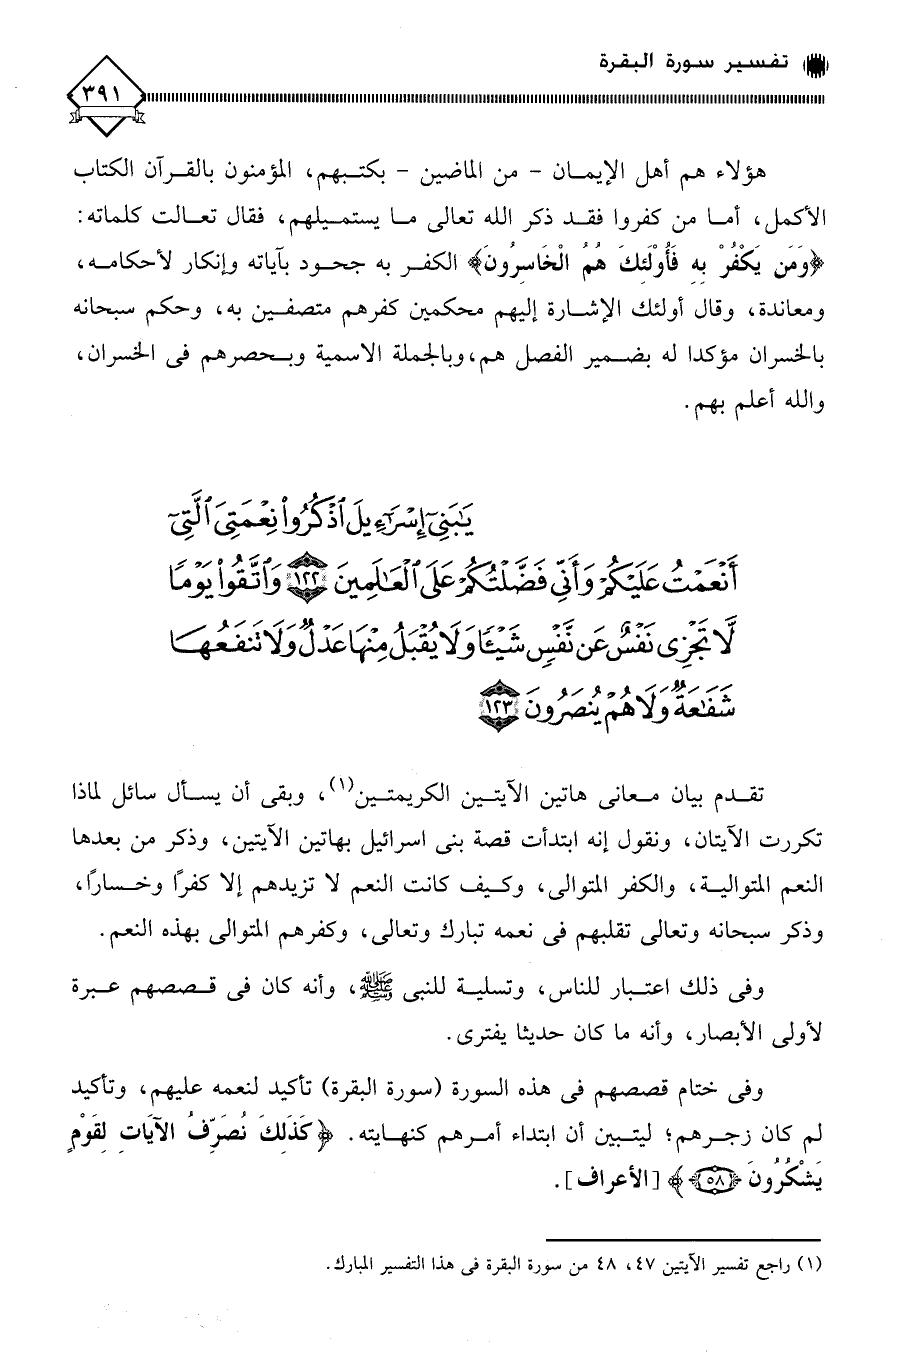 تفسير سورة البقرة
٣٩١
هؤلاء هم أهل الإيمـان - من الماضين - بكتـبهم، المؤمنون بالقـرآن الكتاب
الأكمل، أمـا من كفروا فقـد ذكر الله تعالى مـا يستمـيلهم، فقال تعـالت كلماته:
﴿وَمَن يَكْفُرْ بِهِ فَأُوْلَئِكَ هُمُ الْخَاسِرُونَ﴾ الكفـر به جحـود بآياته وإنكار لأحكامـه،
ومعاندة، وقال أولئك الإشـارة إليهم محكمين كفرهم متصفـين به، وحكم سبحانه
بالخسران مؤكدا له بضـمير الفصل هم، وبالجملة الاسمية وبـحصرهم فى الخسران،
والله أعلم بهم.
يَـٰبَنِىٓ إِسْرَٰٓءِيلَ ٱذْكُرُوا۟ نِعْمَتِىَ ٱلَّتِىٓ
أَنْعَمْتُ عَلَيْكُمْ وَأَنِّى فَضَّلْتُكُمْ عَلَى ٱلْعَـٰلَمِينَ ١٢٢ وَٱتَّقُوا۟ يَوْمًا
لَّا تَجْزِى نَفْسٌ عَن نَّفْسٍ شَيْـًٔا وَلَا يُقْبَلُ مِنْهَا عَدْلٌ وَلَا تَنفَعُهَا
شَفَـٰعَةٌ وَلَا هُمْ يُنصَرُونَ ١٢٣
تقـدم بيان مـعانى هاتين الآيتـين الكريمتـين(١)، وبقى أن يسـأل سائل لماذا
تكررت الآيتان، ونقول إنه ابتدأت قصة بنى اسرائيل بهاتين الآيتين، وذكر من بعدها
النعم المتواليـة، والكفر المتوالى، وكـيف كانت النعم لا تزيدهم إلا كفرًا وخـسارًا،
وذكر سبحانه وتعالى تقلبهم فى نعمه تبارك وتعالى، وكفرهم المتوالى بهذه النعم.
وفى ذلك اعتـبار للناس، وتسليـة للنبى ﷺ، وأنه كان فى قـصصهم عبـرة
لأولى الأبصار، وأنه ما كان حديثا يفترى.
وفى ختام قصصهم فى هذه السورة (سورة البقرة) تأكيد لنعمه عليهم، وتأكيد
لم كان زجـرهم؛ ليتبين أن ابتداء أمـرهم كنهـايته. ﴿كَذَلِكَ نُصَرِّفُ الآيَاتِ لِقَوْمٍ
يَشْكُرُونَ ٥٨﴾ [الأعراف].
(١) راجع تفسير الآيتين ٤٧، ٤٨ من سورة البقرة فى هذا التفسير المبارك.